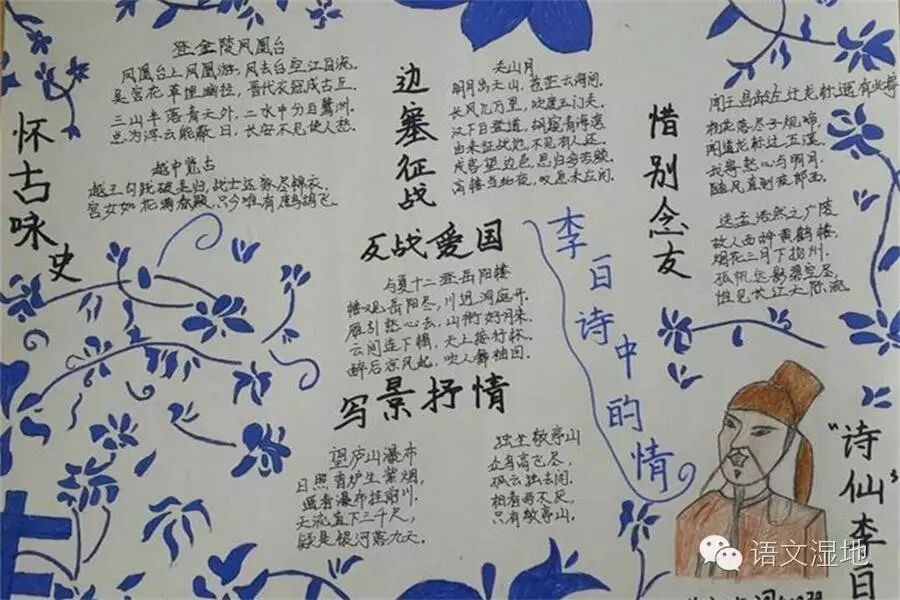 怀古咏史
登金陵凤凰台
凤凰台上凤凰游,凤去台空江自流。
吴宫花草埋幽径,晋代衣冠成古丘。
三山半落青天外,二水中分白鹭洲。
总为浮云能蔽日,长安不见使人愁。
越中览古
越王勾践破吴归,战士还家尽锦衣。
宫女如花满春殿,只今唯有鹧鸪飞。
边塞征战
关山月
明月出天山,苍茫云海间。
长风几万里,吹度玉门关。
汉下白登道,胡窥青海湾。
由来征战地,不见有人还。
戍客望边色,思归多苦颜。
高楼当此夜,叹息未应闲。
反战爱国
与夏十二登岳阳楼
楼观岳阳尽,川迥洞庭开。
雁引愁心去,山衔好月来。
云间连下榻,天上接行杯。
醉后凉风起,吹人舞袖回。
写景抒情
望庐山瀑布
日照香炉生紫烟,
遥看瀑布挂前川。
飞流直下三千尺,
疑是银河落九天。
独坐敬亭山
众鸟高飞尽,
孤云独去闲。
相看两不厌,
只有敬亭山。
李白诗中的情
惜别念友
闻王昌龄左迁龙标遥有此寄
杨花落尽子规啼,
闻道龙标过五溪。
我寄愁心与明月,
随风直到夜郎西。
送孟浩然之广陵
故人西辞黄鹤楼,
烟花三月下扬州。
孤帆远影碧空尽,
惟见长江天际流。
"诗仙"李白
语文湿地